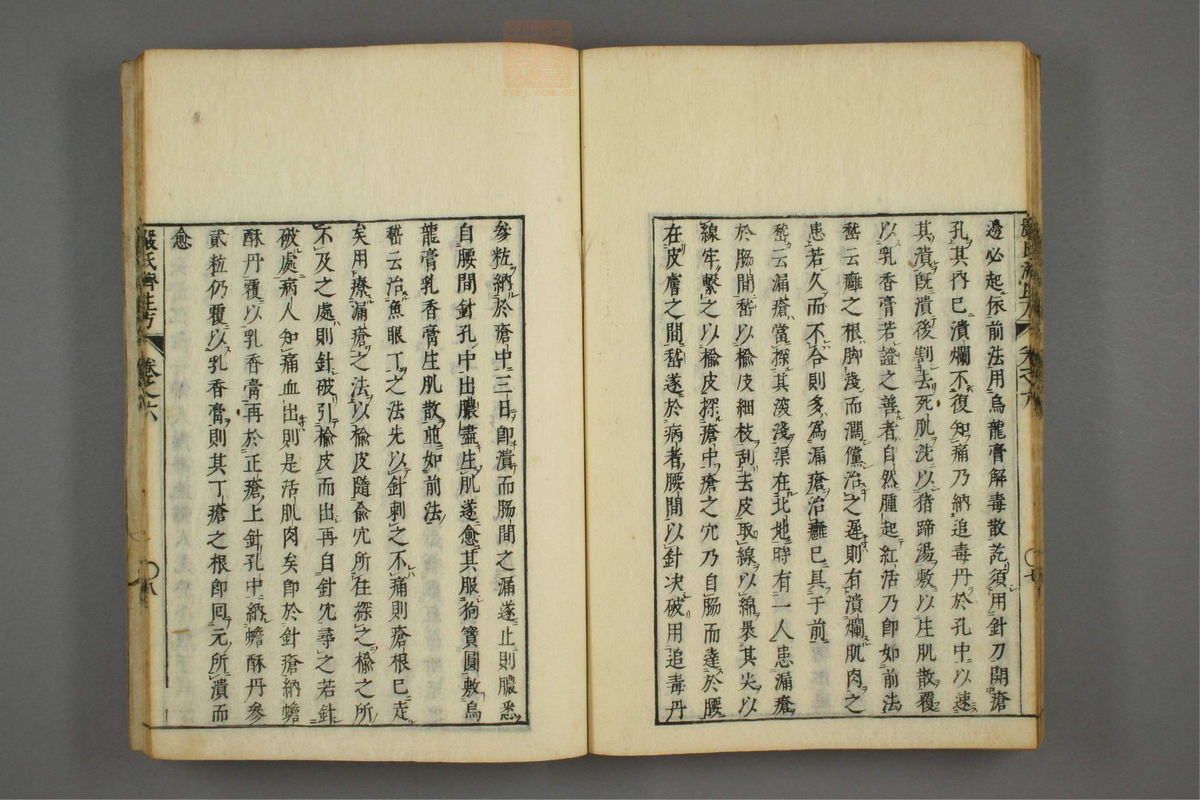 邊必起依前法用烏龍膏解毒散訖須用針刀開瘡
孔其內已潰爛不復知痛乃納追毒丹於孔中以速
其潰既潰後割去死肌洗以猪蹄湯敷以生肌散覆
以乳香膏若證之善者自然腫起紅活乃即如前法
嵆云癰之根脚淺而濶儻治之遲則有潰爛肌肉之
患若久而不合則多爲漏瘡治癰已具于前
嵆云漏瘡當探其深淺渠在北地時有一人患漏瘡
於腸間嵆以楡皮細枝刮去皮取線以綿褁其尖以
線牢繫之以楡皮探瘡中瘡之穴乃自腸而達於腰
在皮膚之間嵆遂於病者腰間以針决破用追毒丹
嚴氏濟生方 卷之六 〇七
參粒納於瘡中三日即潰而腸間之漏遂止則膿悉
自腰間針孔中出膿盡生肌遂愈其服狗寶圓敷烏
龍膏乳香膏生肌散並如前法
嵆云治魚眼丁之法先以針刺之不痛則瘡根已走
矣用療漏瘡之法以楡皮隨兪穴所在探之楡之所
不及之處則針破引楡皮而出再自針穴尋之若針
破處病人知痛血出則是活肌肉矣即於針瘡納蟾
酥丹覆以乳香膏再於正瘡上針孔中納蟾酥丹參
貳粒仍覆以乳香膏則其丁瘡之根即回元所潰而
愈
嚴氏濟生方 卷之六 〇八